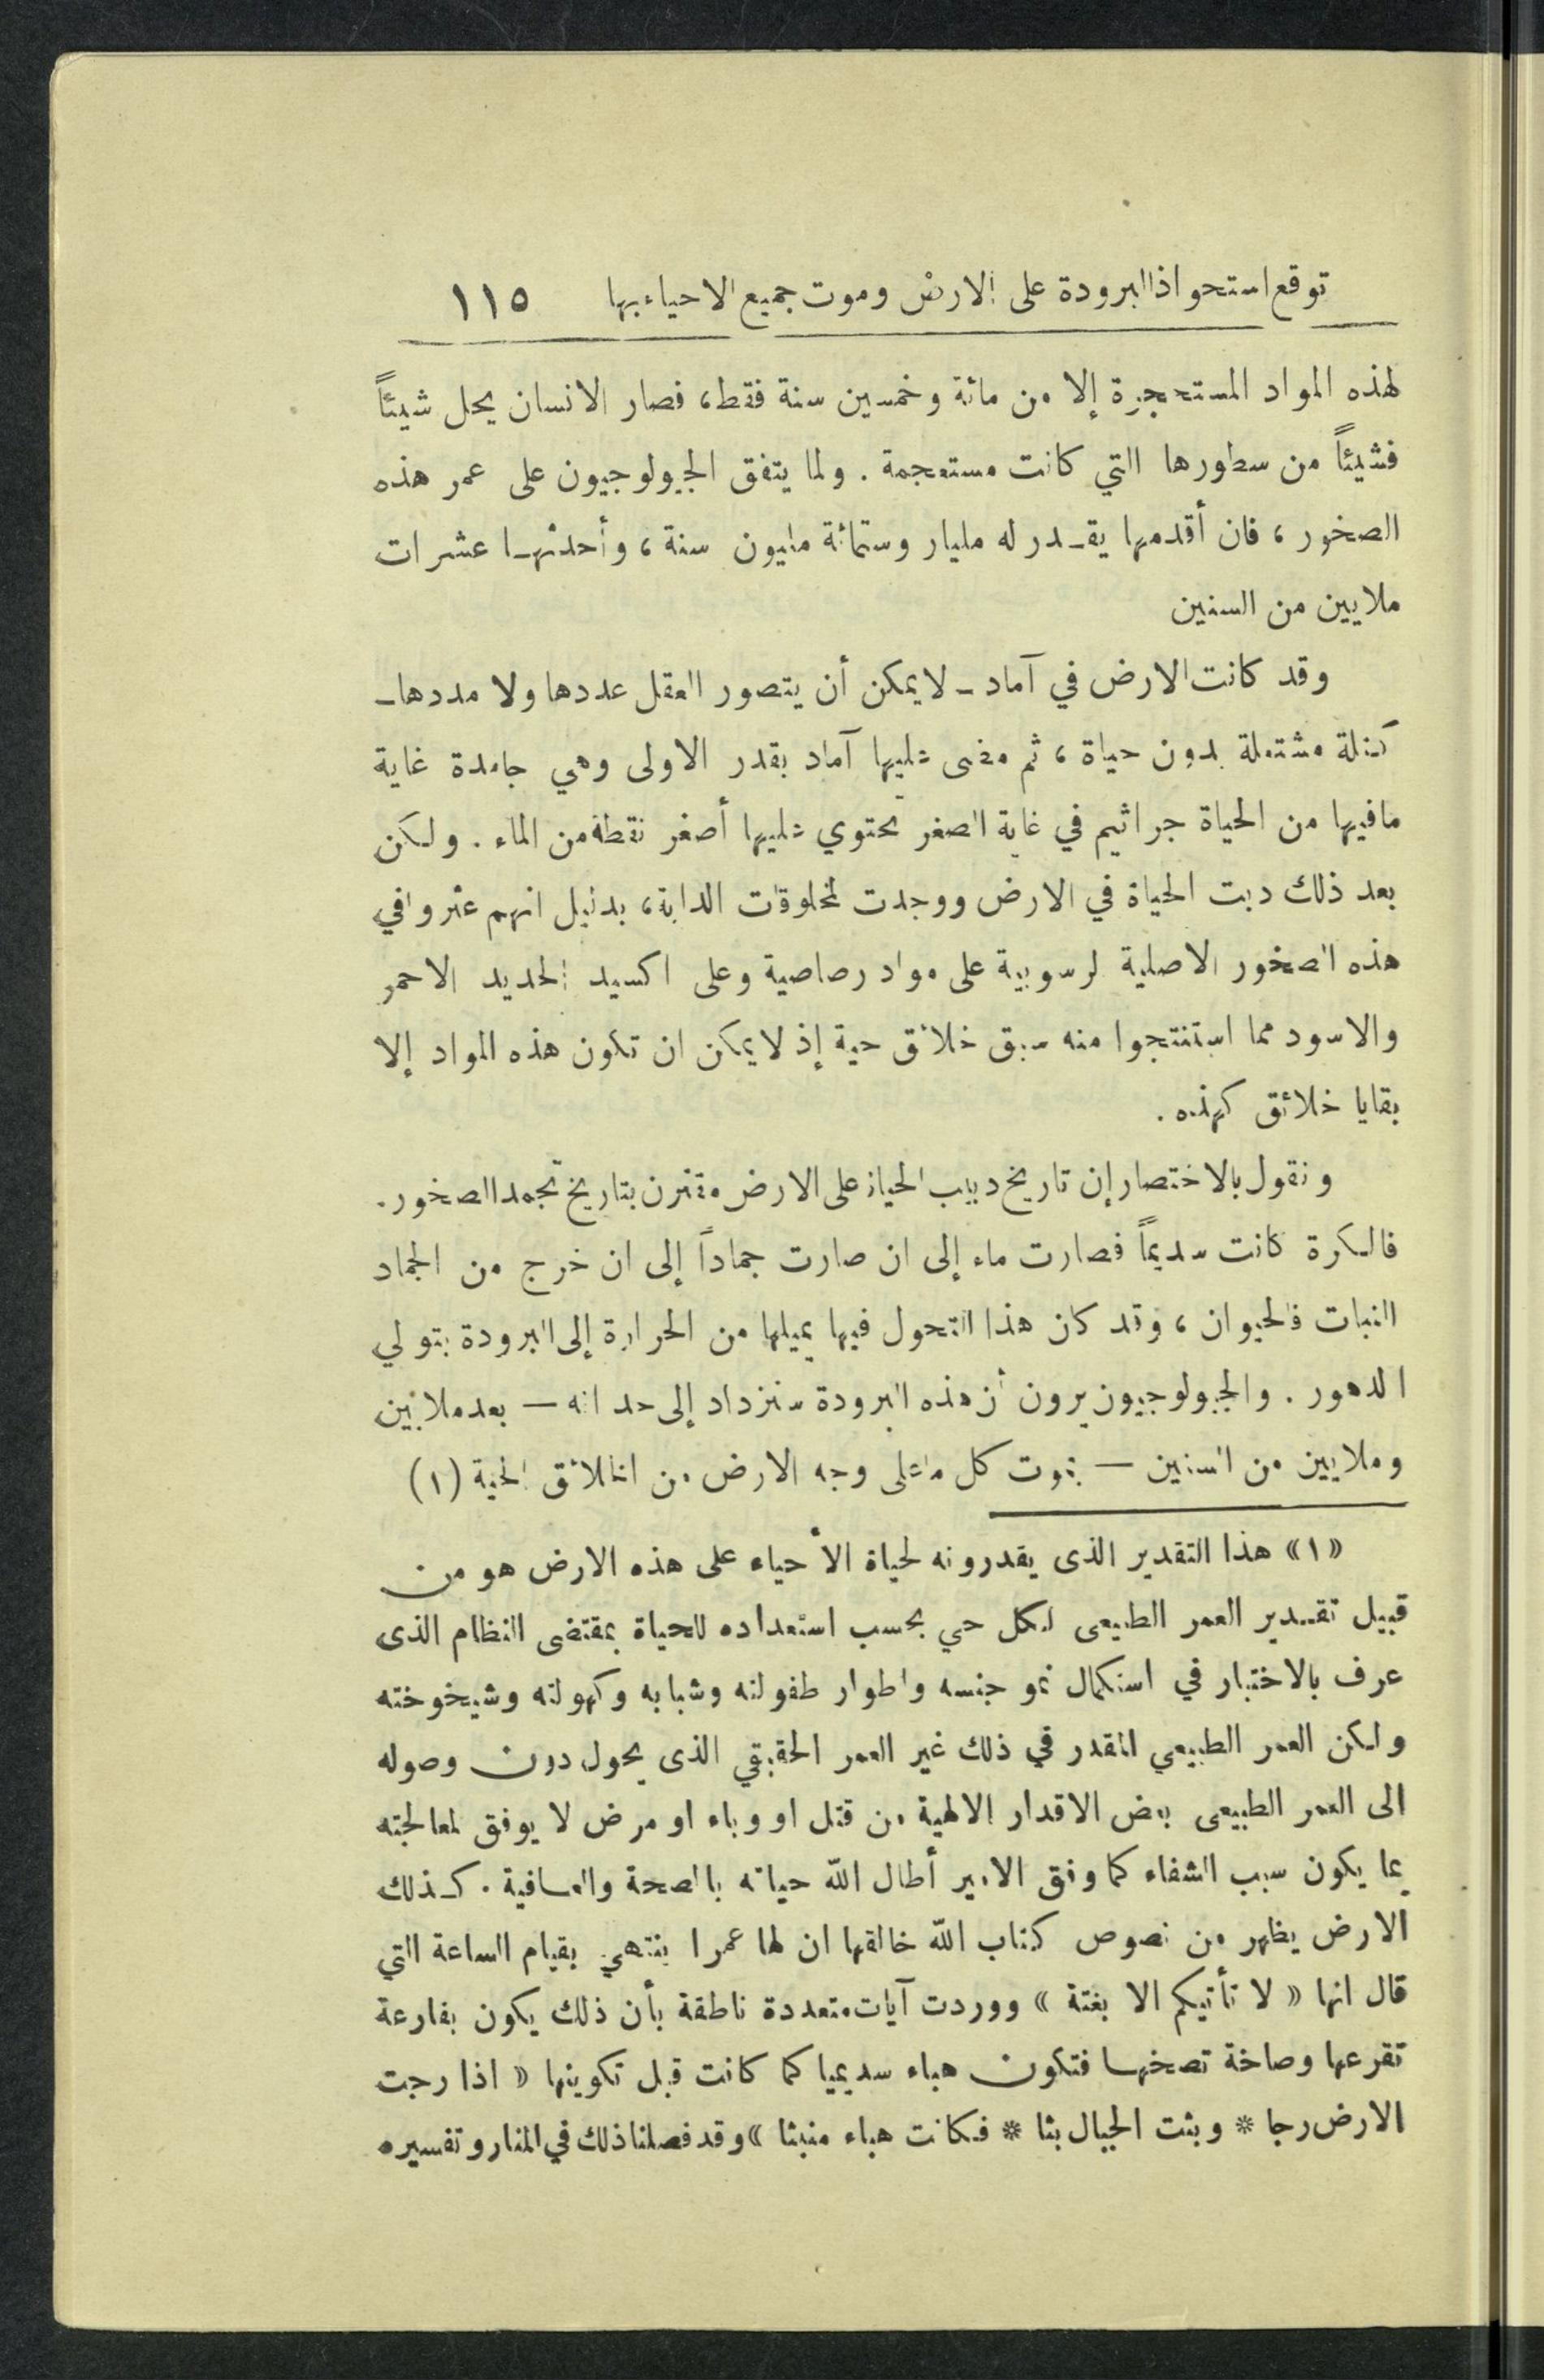 توقع استحواذ البرودة على الارض وموت جميع الاحياء بها ١١٥
لهذه المواد المستحجرة إلا من مائة وخمسين سنة فقط، فصار الانسان يحل شيئاً
فشيئاً من سطورها التي كانت مستعجمة . ولما يتفق الجيولوجيون على عمر هذه
الصخور ، فان أقدمها يقـدر له مليار وستمائة مليون سنة ، وأحدثهـا عشرات
ملايين من السنين
وقد كانت الارض في آماد ـ لا يمكن أن يتصور العقل عددها ولا مددها ـ
كتلة مشتعلة بدون حياة ، ثم مضى عليها آماد بقدر الاولى وهي جامدة غاية
مافيها من الحياة جراثيم في غاية الصغر تحتوي عليها أصغر نقطة من الماء . ولكن
بعد ذلك دبت الحياة في الارض ووجدت لمخلوقات الدابة، بدليل انهم عثروا في
هذه الصخور الاصلية لرسوبية على مواد رصاصية وعلى اكسيد الحديد الاحمر
والاسود مما استنتجوا منه سبق خلائق حية إذ لا يمكن ان تكون هذه المواد إلا
بقايا خلائق كهذه .
ونقول بالاختصار إن تاريخ دبيب الحياة على الارض مقترن بتاريخ تجمد الصخور .
فالكرة كانت سديماً فصارت ماء إلى ان صارت جماداً إلى ان خرج من الجماد
النبات فالحيوان ، وقد كان هذا التحول فيها بميلها من الحرارة إلى البرودة بتولي
الدهور . والجيولوجيون يرون أن هذه البرودة ستزداد إلى حد انه — بعد ملايين
وملايين من السنين — يموت كل ما على وجه الارض من الخلائق الحية (١)
«١» هذا التقدير الذى يقدرونه لحياة الأحياء على هذه الارض هو من
قبيل تقـدير العمر الطبيعى لكل حي بحسب استعداده للحياة بمقتضى النظام الذى
عرف بالاختبار في استكمال نمو جنسه واطوار طفولته وشبابه وكهولته وشيخوخته
ولكن العمر الطبيعي المقدر في ذلك غير العمر الحقيقي الذى يحول دون وصوله
الى العمر الطبيعى بعض الاقدار الالهية من قتل او وباء او مرض لا يوفق لمعالجته
بما يكون سبب الشفاء كما وفق الامير أطال الله حياته بالصحة والعـافية . كـذلك
الارض يظهر من نصوص كتاب الله خالقها ان لها عمرا ينتهي بقيام الساعة التي
قال انها « لا تأتيكم الا بغتة » ووردت آيات متعددة ناطقة بأن ذلك يكون بقارعة
تقرعها وصاخة تصخهـا فتكون هباء سديميا كما كانت قبل تكوينها « اذا رجت
الارض رجا * وبثت الجبال بثا * فكانت هباء منبثا » وقد فصلنا ذلك في المنار وتفسيره